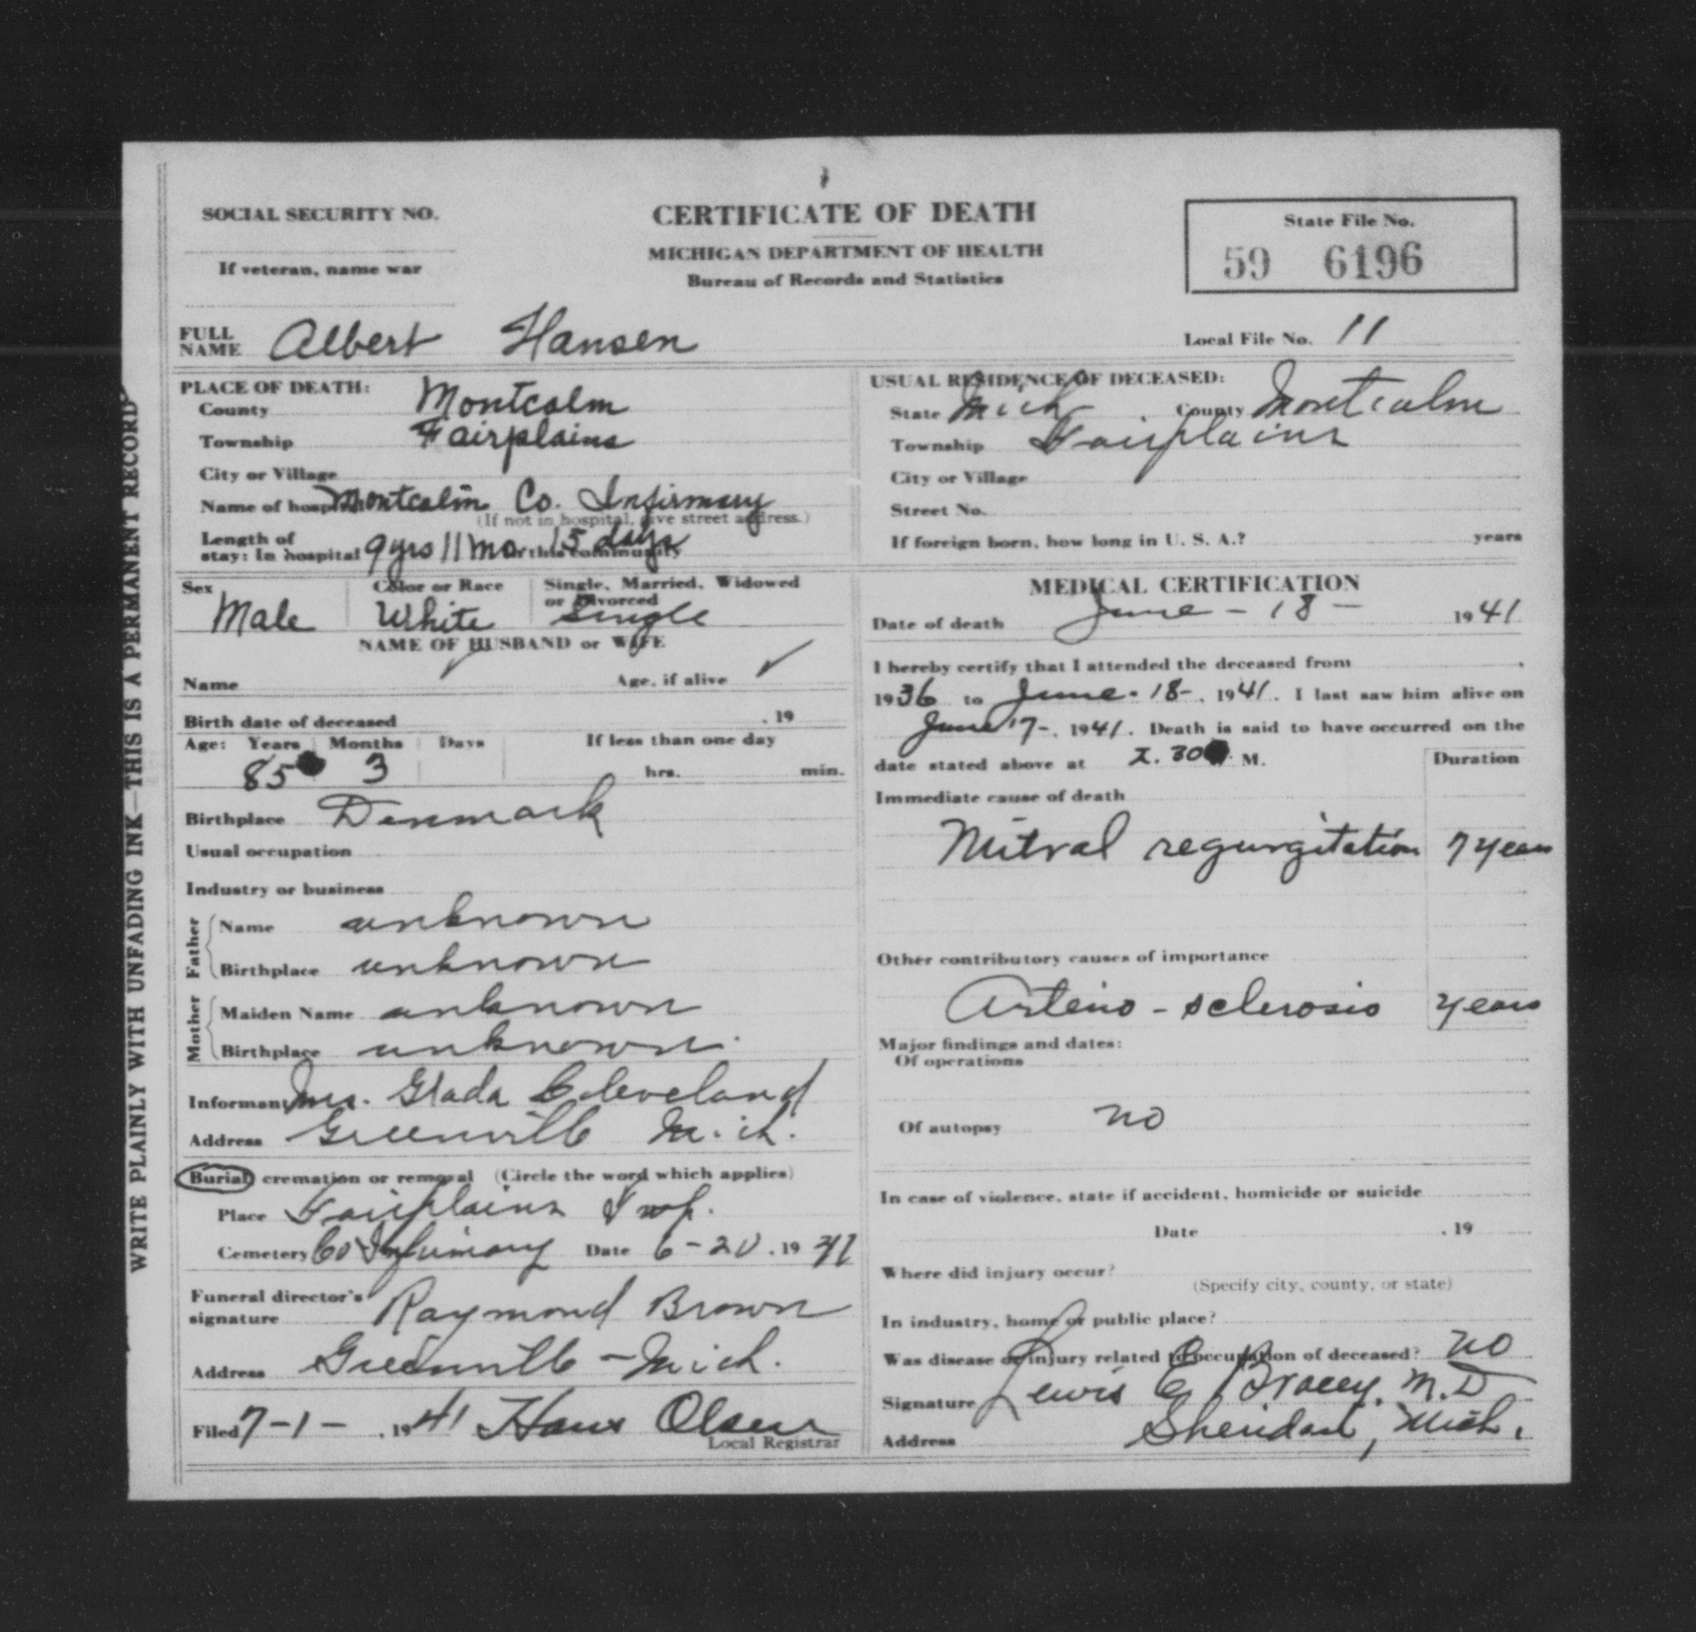 SOCIAL SECURITY NO.
If veteran, name war
CERTIFICATE OF DEATH
MICHIGAN DEPARTMENT OF HEALTH
Bureau of Records and Statistics
State File No.
59 6196
FULL NAME Albert Hansen
Local File No. 11
WRITE PLAINLY WITH UNFADING INK—THIS IS A PERMANENT RECORD
PLACE OF DEATH:
County Montcalm
Township Fairplains
City or Village
Name of hospital Montcalm Co. Infirmary
(If not in hospital, give street address.)
Length of
stay: In hospital 9 yrs 11 mo. 15 days or this community
Sex Male
Color or Race White
Single, Married, Widowed or Divorced Single
NAME OF HUSBAND or WIFE
Name Age, if alive ✓
Birth date of deceased , 19
Age: Years Months Days If less than one day
85 3 hrs. min.
Birthplace Denmark
Usual occupation
Industry or business
Father
Name unknown
Birthplace unknown
Mother
Maiden Name unknown
Birthplace unknown.
Informant Mrs. Glada Cleveland
Address Greenville Mich.
Burial cremation or removal (Circle the word which applies)
Place Fairplains Twp.
Cemetery Co Infirmary Date 6-20, 19 41
Funeral director's
signature Raymond Brown
Address Greenville - Mich.
Filed 7-1-, 1941 Hans Olsen
Local Registrar
USUAL RESIDENCE OF DECEASED:
State Mich County Montcalm
Township Fairplains
City or Village
Street No.
If foreign born, how long in U. S. A.? years
MEDICAL CERTIFICATION
Date of death June - 18 - 1941
I hereby certify that I attended the deceased from ,
1936 to June - 18 -, 1941. I last saw him alive on
June 17 -, 1941. Death is said to have occurred on the
date stated above at 2.30 M.
Duration
Immediate cause of death
Mitral regurgitation 7 years
Other contributory causes of importance
Arterio - sclerosis years
Major findings and dates:
Of operations
Of autopsy no
In case of violence, state if accident, homicide or suicide
Date , 19
Where did injury occur?
(Specify city, county, or state)
In industry, home or public place?
Was disease or injury related to occupation of deceased? no
Signature Lewis E. Bracey, M.D
Address Sheridan, Mich.